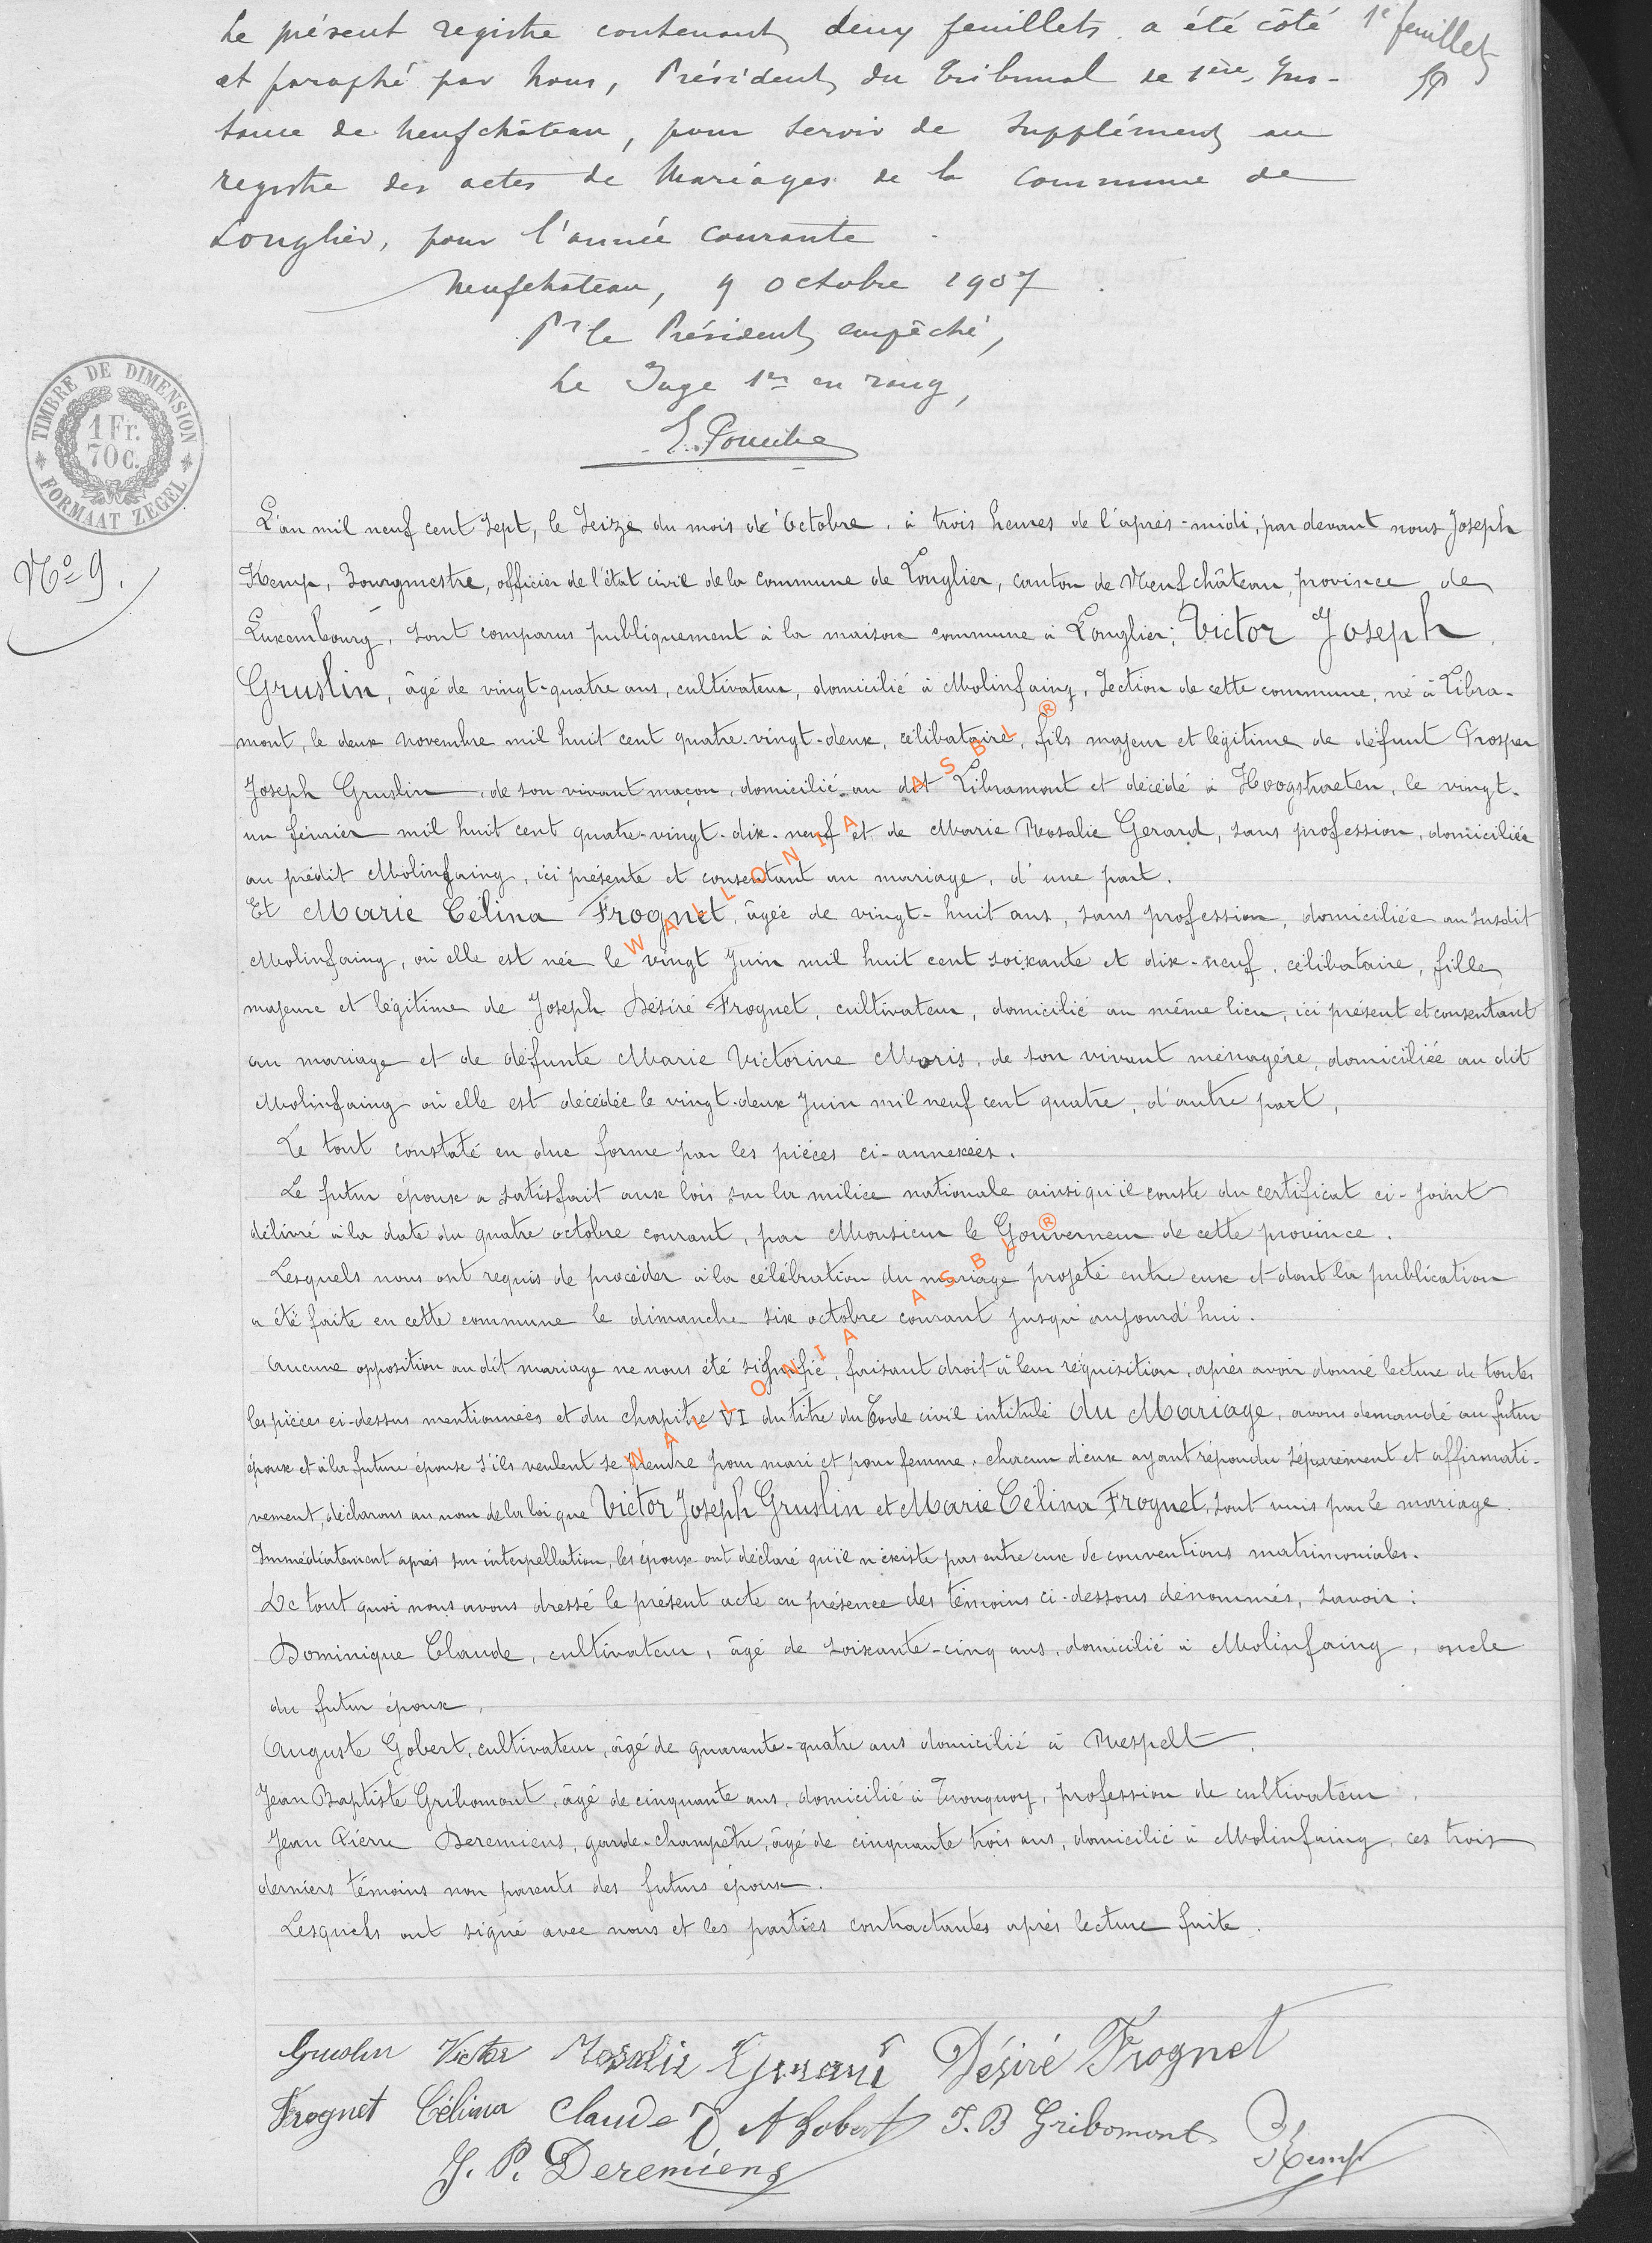 Le présent registre contenant deux feuillets a été côté 1e feuillet
et paraphé par nous, Président du Tribunal de 1ère Ins-
tance de Neufchâteau, pour servir de supplément au
registre des actes de Mariages de la commune de
Longlier, pour l'année courante.
Neufchâteau, 9 octobre 1907.
Pr le Président empêché,
Le Juge 1er en rang,
TIMBRE DE DIMENSION
1 Fr.
70 c.
FORMAAT ZEGEL
No 9.
L'an mil neuf cent sept, le seize du mois de Octobre, à trois heures de l'après-midi, par devant nous Joseph
Kemp, Bourgmestre, officier de l'état civil de la commune de Longlier, canton de Neufchâteau, province de
Luxembourg, sont comparus publiquement à la maison commune à Longlier: Victor Joseph
Gruslin, âgé de vingt-quatre ans, cultivateur, domicilié à Molinfaing, section de cette commune, né à Libra-
mont, le deux novembre mil huit cent quatre-vingt-deux, célibataire, fils majeur et légitime de défunt Prosper
Joseph Gruslin, de son vivant maçon, domicilié au dit Libramont et décédé à Hoogstraeten, le vingt-
un février mil huit cent quatre-vingt-dix-neuf et de Marie Rosalie Gerard, sans profession, domiciliée
au prédit Molinfaing, ici présente et consentant au mariage, d'une part.
Et Marie Célina Frognet, âgée de vingt-huit ans, sans profession, domiciliée au susdit
Molinfaing, où elle est née le vingt Juin mil huit cent soixante et dix-neuf, célibataire, fille
majeure et légitime de Joseph Désiré Frognet, cultivateur, domicilié au même lieu, ici présent et consentant
au mariage et de défunte Marie Victorine Maris, de son vivant ménagère, domiciliée au dit
Molinfaing où elle est décédée le vingt-deux Juin mil neuf cent quatre, d'autre part,
Le tout constaté en due forme par les pièces ci-annexées.
Le futur époux a satisfait aux lois sur la milice nationale ainsi qu'il conste du certificat ci-joint
délivré à la date du quatre octobre courant, par Monsieur le Gouverneur de cette province.
Lesquels nous ont requis de procéder à la célébration du mariage projeté entre eux et dont la publication
a été faite en cette commune le dimanche six octobre courant jusqu'aujourd'hui.
Aucune opposition au dit mariage ne nous été signifié, faisant droit à leur réquisition, après avoir donné lecture de toutes
les pièces ci-dessus mentionnées et du chapitre VI du titre du Code civil intitulé du Mariage, avons demandé au futur
époux et à la future épouse s'ils veulent se prendre pour mari et pour femme; chacun d'eux ayant répondu séparément et affirmati-
vement, déclarons au nom de la loi que Victor Joseph Gruslin et Marie Célina Frognet, sont unis par le mariage.
Immédiatement après sur interpellation, les époux ont déclaré qu'il n'existe pas entre eux de conventions matrimoniales.
De tout quoi nous avons dressé le présent acte en présence des témoins ci-dessous dénommés, savoir:
Dominique Claude, cultivateur, âgé de soixante-cinq ans, domicilié à Molinfaing, oncle
du futur époux,
Auguste Gobert, cultivateur, âgé de quarante-quatre ans domicilié à Respelt.
Jean Baptiste Gribomont, âgé de cinquante ans, domicilié à Tronquoy, profession de cultivateur,
Jean Pierre Deremiens, garde-champêtre, âgé de cinquante trois ans, domicilié à Molinfaing, ces trois
derniers témoins non parents des futurs époux.
Lesquels ont signé avec nous et les parties contractantes après lecture faite.
Gruslin Victor Rosalie Gerard Désiré Frognet
Frognet Célina Claude D A Gobert J. B Gribomont Kemp
J. P. Deremiens
WALLONIA ASBL ®
WALLONIA ASBL ®